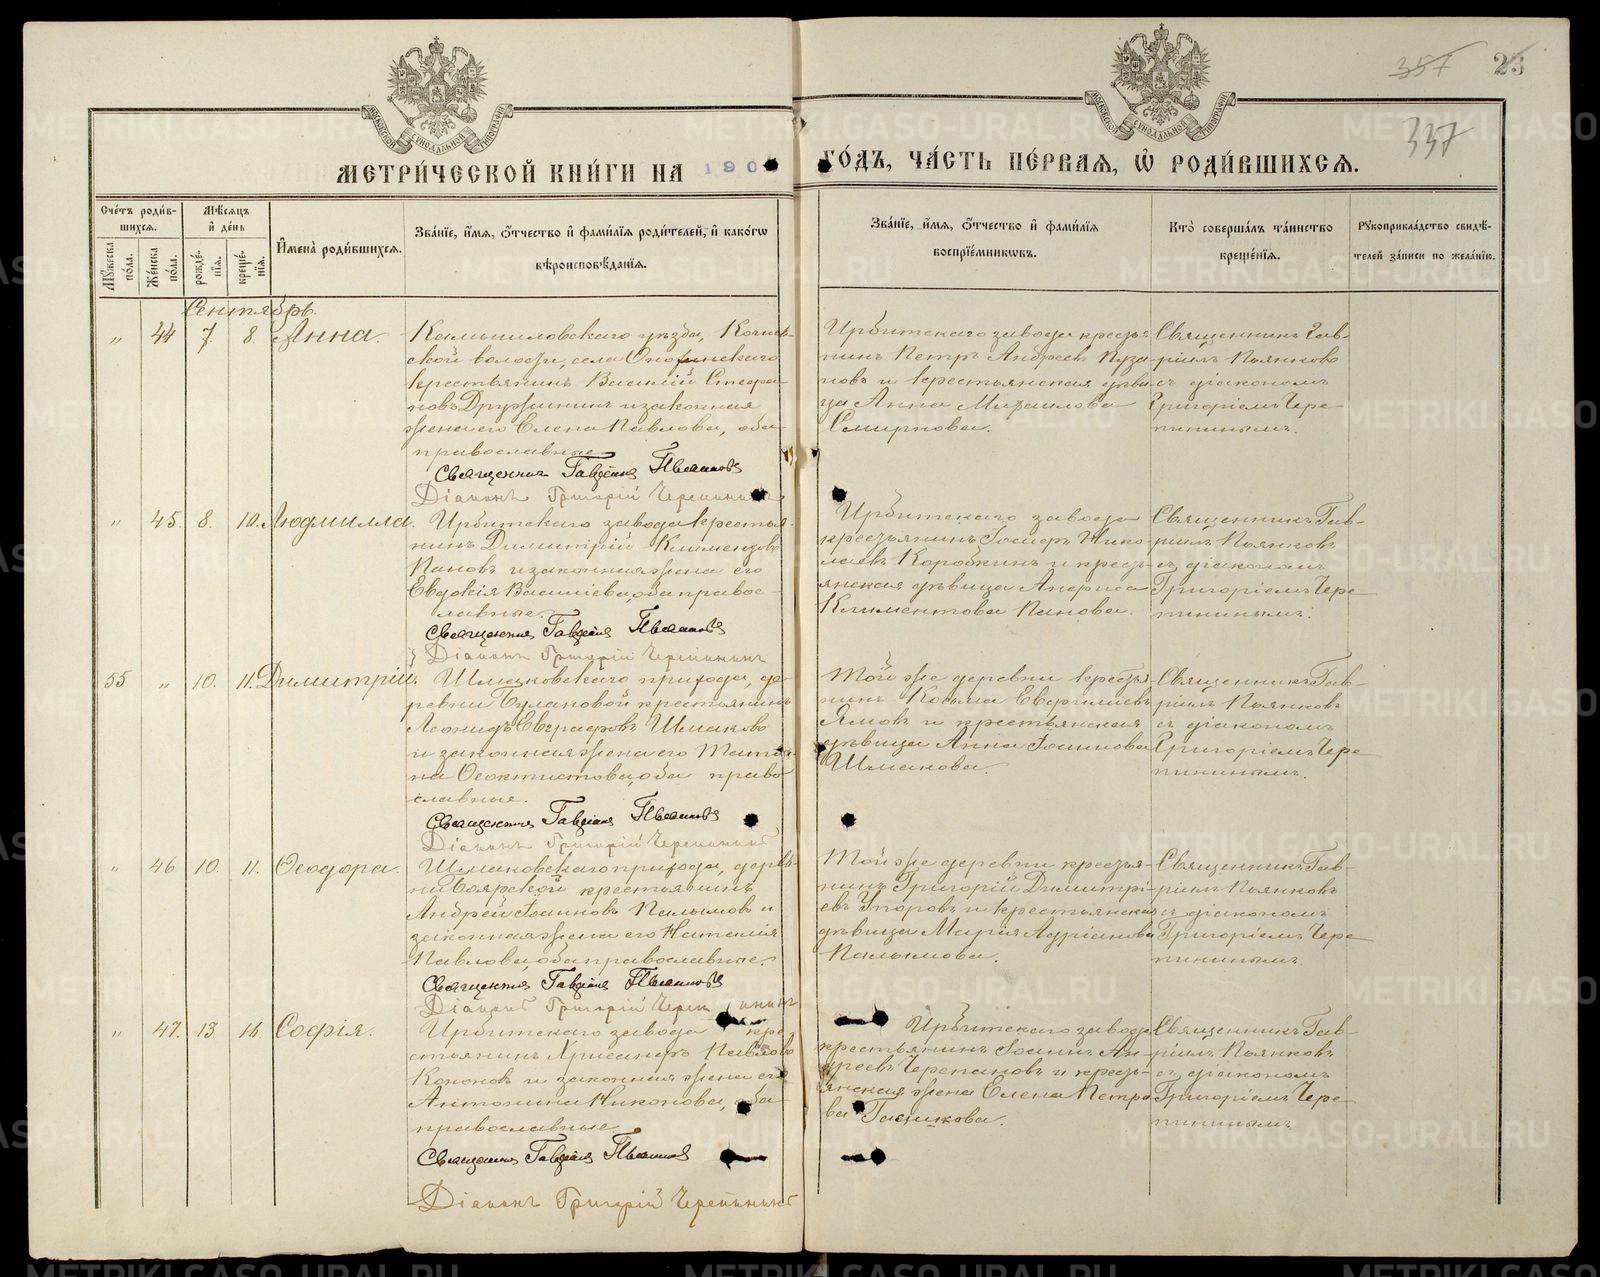 357 23
337
МЕТРИ́ЧЕСКОЙ КНИ́ГИ НА 190 ГО́ДЪ, ЧА́СТЬ ПЕ́РВАЯ, Ѡ҆ РОДИ́ВШИХСЯ.
Сче́тъ роди́в-
шихся.
Мѣ́сяцъ
и҆ де́нь
Мꙋ́жеска
по́ла.
Же́нска
по́ла.
рожде́-
нїя.
креще́-
нїя.
И҆мена̀ роди́вшихся.
Зва́нїе, и҆́мя, ѻ҆́тчество и҆ фами́лїя роди́телей, и҆ како́гѡ
вѣроисповѣ́данїя.
Зва́нїе, и҆́мя, ѻ҆́тчество и҆ фами́лїя
воспрїе́мникѡвъ.
Кто̀ соверша́лъ та́инство
креще́нїя.
Рꙋкоприкла́дство свидѣ́-
телей за́писи по жела́нїю.
Сентябрь.
" 44 7. 8. Анна.
Камышловскаго уѣзда,
ской волости, села
крестьянинъ Василій Стефа-
новъ Дружининъ и законная
жена его Елена Павлова, оба
православные.
Священникъ Гавріилъ Пьянковъ
Діаконъ Григорій Черепининъ
Ирбитскаго завода крестья-
нинъ Петръ Андреевъ Пуза-
новъ и крестьянская дѣви-
ца Анна Михаилова
Смирнова.
Священникъ Гав-
ріилъ Пьянковъ
съ діакономъ
Григоріемъ Чере-
пининымъ.
" 45. 8. 10. Людмилла.
Ирбитскаго завода крестья-
нинъ Димитрій Климентовъ
Пановъ и законная жена его
Евдокія Васильева, оба право-
славные.
Священникъ Гавріилъ Пьянковъ
Діаконъ Григорій Черепининъ
Ирбитскаго завода
крестьянинъ Іосифъ Нико-
лаевъ Коробкинъ и кресть-
янская дѣвица Анфиса
Климентова Панова.
Священникъ Гав-
ріилъ Пьянковъ
съ діакономъ
Григоріемъ Чере-
пининымъ.
55 " 10. 11. Димитрій.
Шмаковскаго прихода, де-
ревни Булановой крестьянинъ
Леонидъ Евграфовъ Шмаковъ
и законная жена его Татья-
на Феоктистова, оба право-
славные.
Священникъ Гавріилъ Пьянковъ
Діаконъ Григорій Черепининъ
Той же деревни крестья-
нинъ Косьма
Ямовъ и крестьянская
дѣвица Анна Іоаннова
Шмакова.
Священникъ Гав-
ріилъ Пьянковъ
съ діакономъ
Григоріемъ Чере-
пининымъ.
" 46 10. 11. Ѳеодора.
Шмаковскаго прихода, дерев-
ни Боярской крестьянинъ
Андрей Іоанновъ Палымовъ и
законная жена его Наталія
Павлова, оба православные.
Священникъ Гавріилъ Пьянковъ
Діаконъ Григорій Черепининъ
Той же деревни крестья-
нинъ Григорій Димитрі-
евъ Упоровъ и крестьянская
дѣвица Марія Адріанова
Палымова.
Священникъ Гав-
ріилъ Пьянковъ
съ діакономъ
Григоріемъ Чере-
пининымъ.
" 47. 13 16. Софія.
Ирбитскаго завода кре-
стьянинъ Хрисанфъ Павловъ
Кононовъ и законная жена его
Антонина Никонова, оба
православные.
Священникъ Гавріилъ Пьянковъ
Діаконъ Григорій Черепининъ
Ирбитскаго завода
крестьянинъ Іоаннъ Ан-
дреевъ Черепановъ и кресть-
янская жена Елена Петро-
ва
Священникъ Гав-
ріилъ Пьянковъ
съ діакономъ
Григоріемъ Чере-
пининымъ.
METRIKI.GASO-URAL.RU